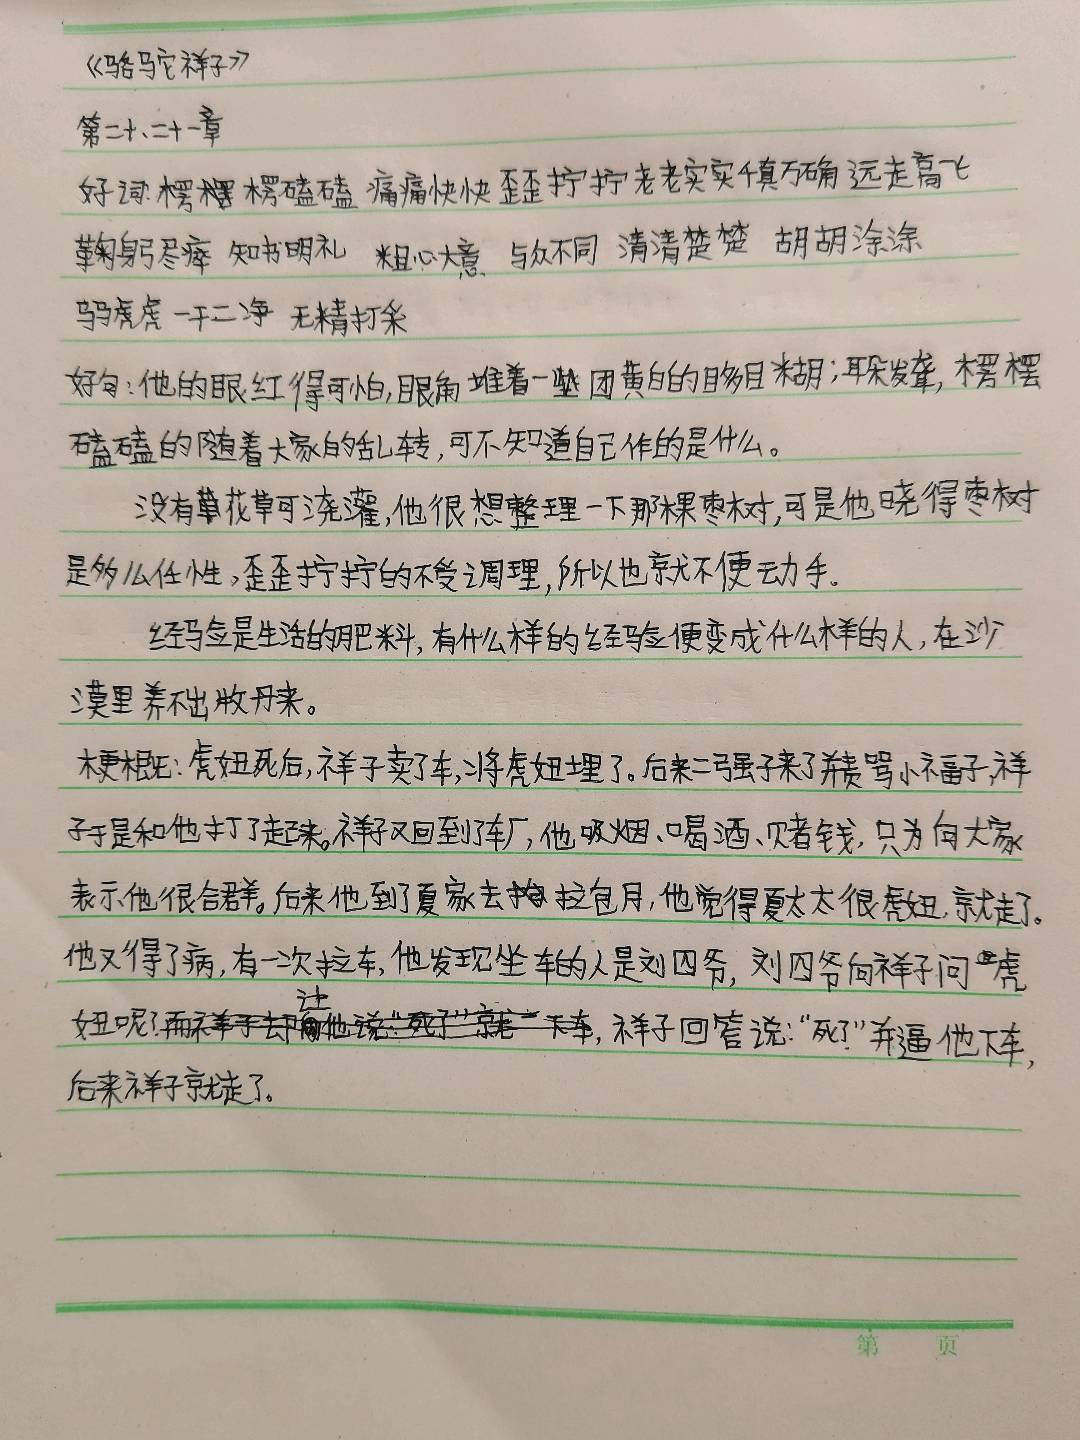 《骆驼祥子》
第二十、二十一章
好词:楞楞磕磕 痛痛快快 歪歪拧拧 老老实实 千真万确 远走高飞
鞠躬尽瘁 知书明礼 粗心大意 与众不同 清清楚楚 胡胡涂涂
马马虎虎 一干二净 无精打采
好句:他的眼红得可怕,眼角堆着一团黄白的眵目糊;耳朵发聋,楞楞
磕磕的随着大家的乱转,可不知道自己作的是什么。
没有花草可浇灌,他很想整理一下那棵枣树,可是他晓得枣树
是多么任性,歪歪拧拧的不受调理,所以也就不便动手。
经验是生活的肥料,有什么样的经验便变成什么样的人,在沙
漠里养不出牡丹来。
梗概:虎妞死后,祥子卖了车,将虎妞埋了。后来二强子来了并责骂小福子,祥
子于是和他打了起来。祥子又回到了车厂,他吸烟、喝酒、赌钱,只为向大家
表示他很合群。后来他到了夏家去拉包月,他觉得夏太太很虎妞,就走了。
他又得了病,有一次拉车,他发现坐车的人是刘四爷,刘四爷向祥子问虎
妞呢?祥子回答说:“死了”并逼他下车,
后来祥子就走了。
第 页